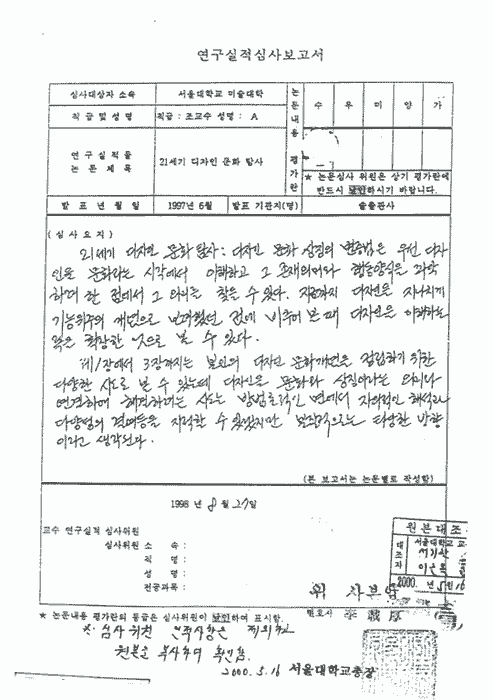 연구실적심사보고서
심사대상자 소속 서울대학교 미술대학
논문내용 평가란
수 우 미 양 가
직급 및 성명 직급 : 조교수 성명 : A
연구실적물 논문제목 21세기 디자인 문화 탐사
★ 논문심사 위원은 상기 평가란에
반드시 날인하시기 바랍니다.
발표년월일 1997년 6월 발표 기관지(명) 솔출판사
(심사요지)
21세기 디자인 문화 탐사 : 디자인 문화 상징의 변증법은 우선 디자
인을 문화라는 시각에서 이해하고 그 존재의미나 행동양식을 파악
하려 한 점에서 그 의의를 찾을 수 있다. 지금까지 디자인을 지나치게
기능위주의 개념으로 번역했던 것에 비추어 볼 때 디자인을 이해하는
폭은 확장한 것으로 볼 수 있다.
제1장에서 3장까지는 본인의 디자인 문화개념을 정립하기 위한
다양한 시도로 볼 수 있는데 디자인을 문화와 상징이라는 의미와
연결하여 해결하려는 시도는 방법론적인 면에서 자의적인 해석과
다양성의 결여등을 지적할 수 있겠지만 보편적으로는 타당한 방향
이라고 생각된다.
(본 보고서는 논문별로 작성함)
1998 년 8 월 27일
교수 연구실적 심사위원
심사위원 소 속 :
직 명 :
성 명 :
전공과목 :
원본대조
대조자 서울대학교 교
서기관
2000. 년 5월 16
위 사본임
변호사
★ 논문내용 평가란의 등급은 심사위원이 날인하여 표시함.
※ 심사위원 인적사항은 제외하고
원본을 복사하여 확인함.
2000. 5. 16 서울대학교총장